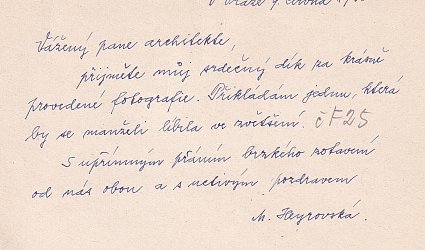 V Praze 9. června
Vážený pane architekte,
přijměte můj srdečný dík za krásně
provedené fotografie. Přikládám jednu, která
by se manželi líbila ve zvětšení. č F25
S upřímným přáním brzkého zotavení
od nás obou a s uctivým pozdravem
M. Heyrovská.